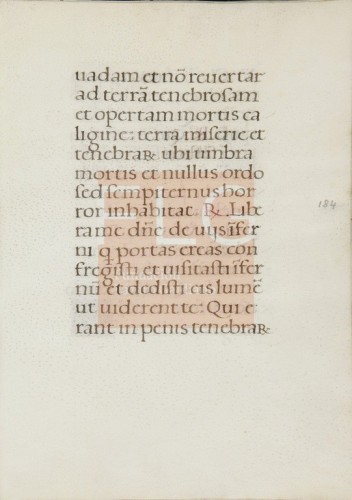 uadam et nõ reuertar
ad terrã tenebrosam
et opertam mortis ca
ligine: terra miserie et
tenebraꝝ ubi umbra
mortis et nullus ordo
sed sempiternus hor
ror inhabitat. ℞. Libe
ra me dñe de uijs ĩfer
ni q portas ereas con
fregisti et uisitasti ĩfer
nũ et dedisti eis lumẽ
ut uiderent te: Qui e
rant in penis tenebraꝝ
184